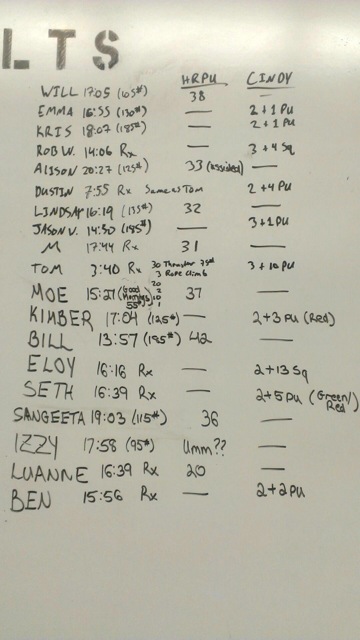 LTS
HRPU CINDY
WILL 17:05 (105#) 38
EMMA 16:55 (130#) — 2+1 PU
KRIS 18:07 (185#) — 2+1 PU
ROB W. 14:06 Rx — 3+4 Sq
ALISON 20:27 (125#) 33 (assisted) —
DUSTIN 7:55 Rx Same as Tom 2+4 PU
LINDSAY 16:19 (135#) 32 —
JASON V. 14:50 (185#) — 3+1 PU
M 17:44 Rx 31 —
TOM 3:40 Rx 30 Thruster 75# 3 Rope Climb 3+10 PU
MOE 15:27 (Good Mornings 55#) 37 —
KIMBER 17:04 (125#) — 2+3 PU (Red)
BILL 13:57 (185#) 42 —
ELOY 16:16 Rx — 2+13 Sq
SETH 16:39 Rx — 2+5 PU (Green/Red)
SANGEETA 19:03 (115#) 36 —
IZZY 17:58 (95#) Umm?? —
LUANNE 16:39 Rx 20 —
BEN 15:56 Rx — 2+2 PU